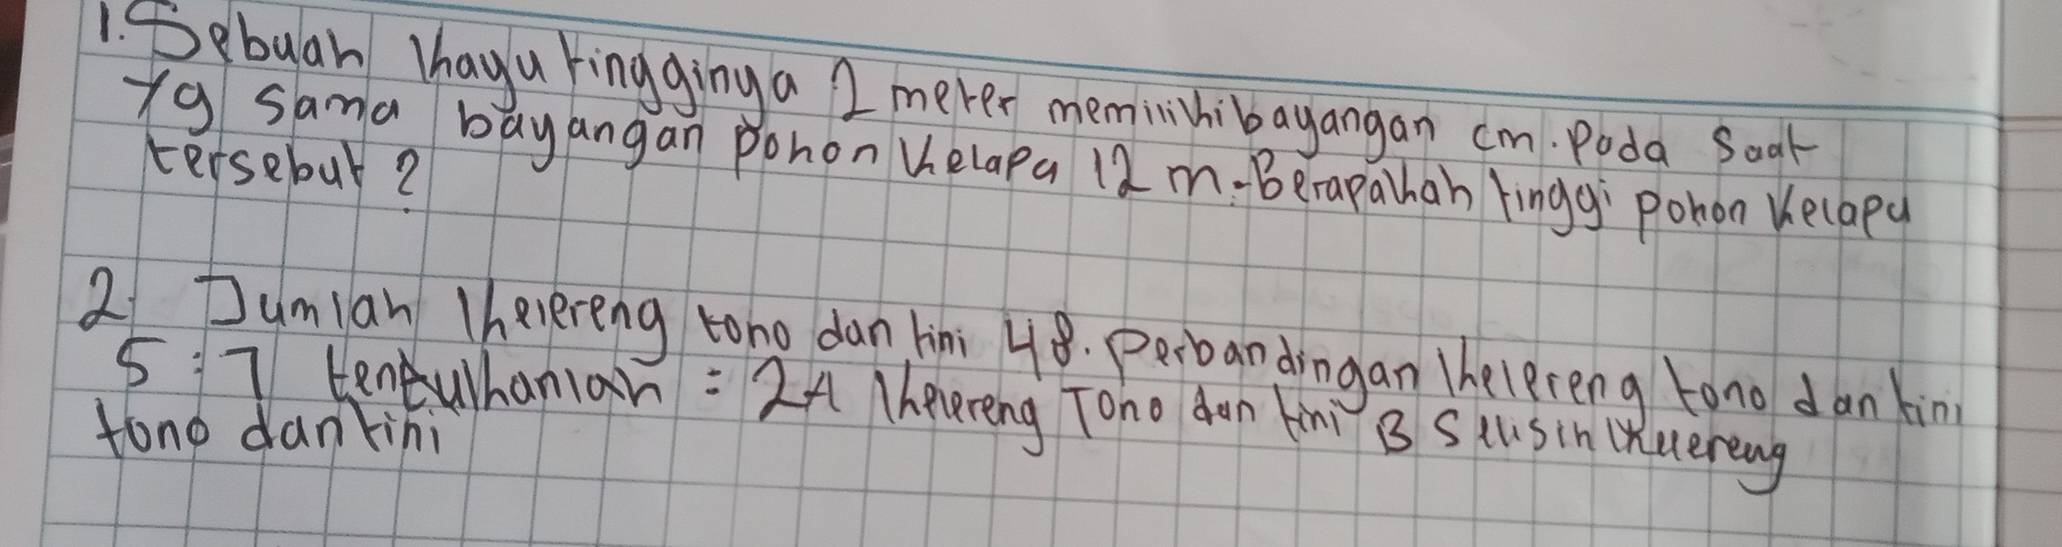 1. Sebuah kayu tingginya 2 meter memiliki bayangan cm. Pada saat
yg sama bayangan pohon kelapa 12 m. Berapakah tinggi pohon kelapa
tersebut?
2. Jumlah kelereng tono dan tini 48. Perbandingan kelereng tono dan tini
5:7 tentukanlah = 2A kelereng Tono dan tini B Selisih kelereng
tono dan tini